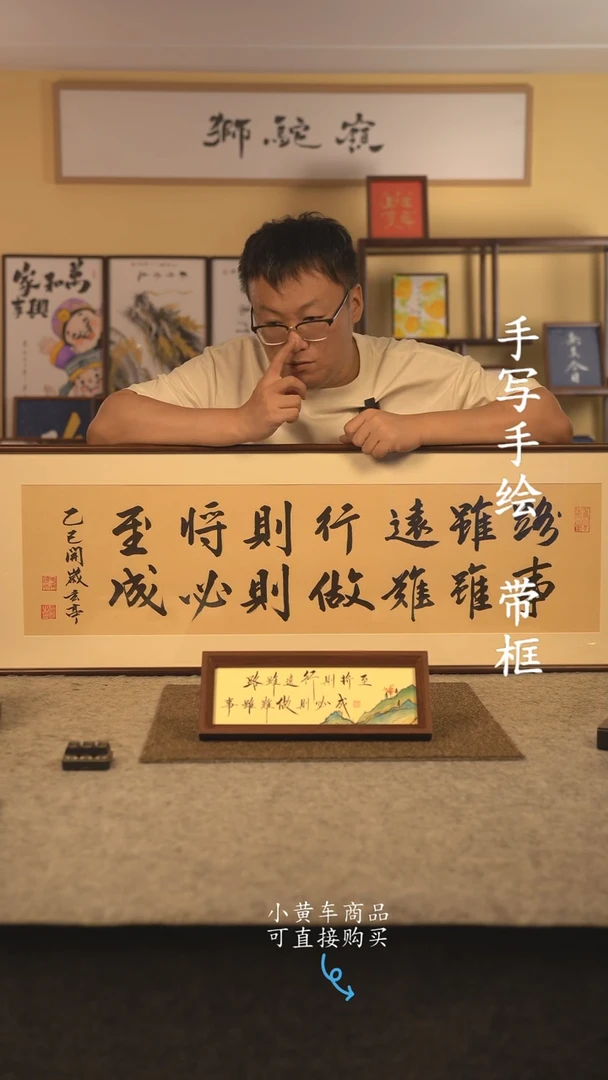 獅駝嶺
家和萬
事興
手写手绘 带框
路雖遠行則将至
事雖難做則必成
乙巳開歲玄亭
路雖遠行則将至
事雖難做則必成
小黄车商品
可直接购买